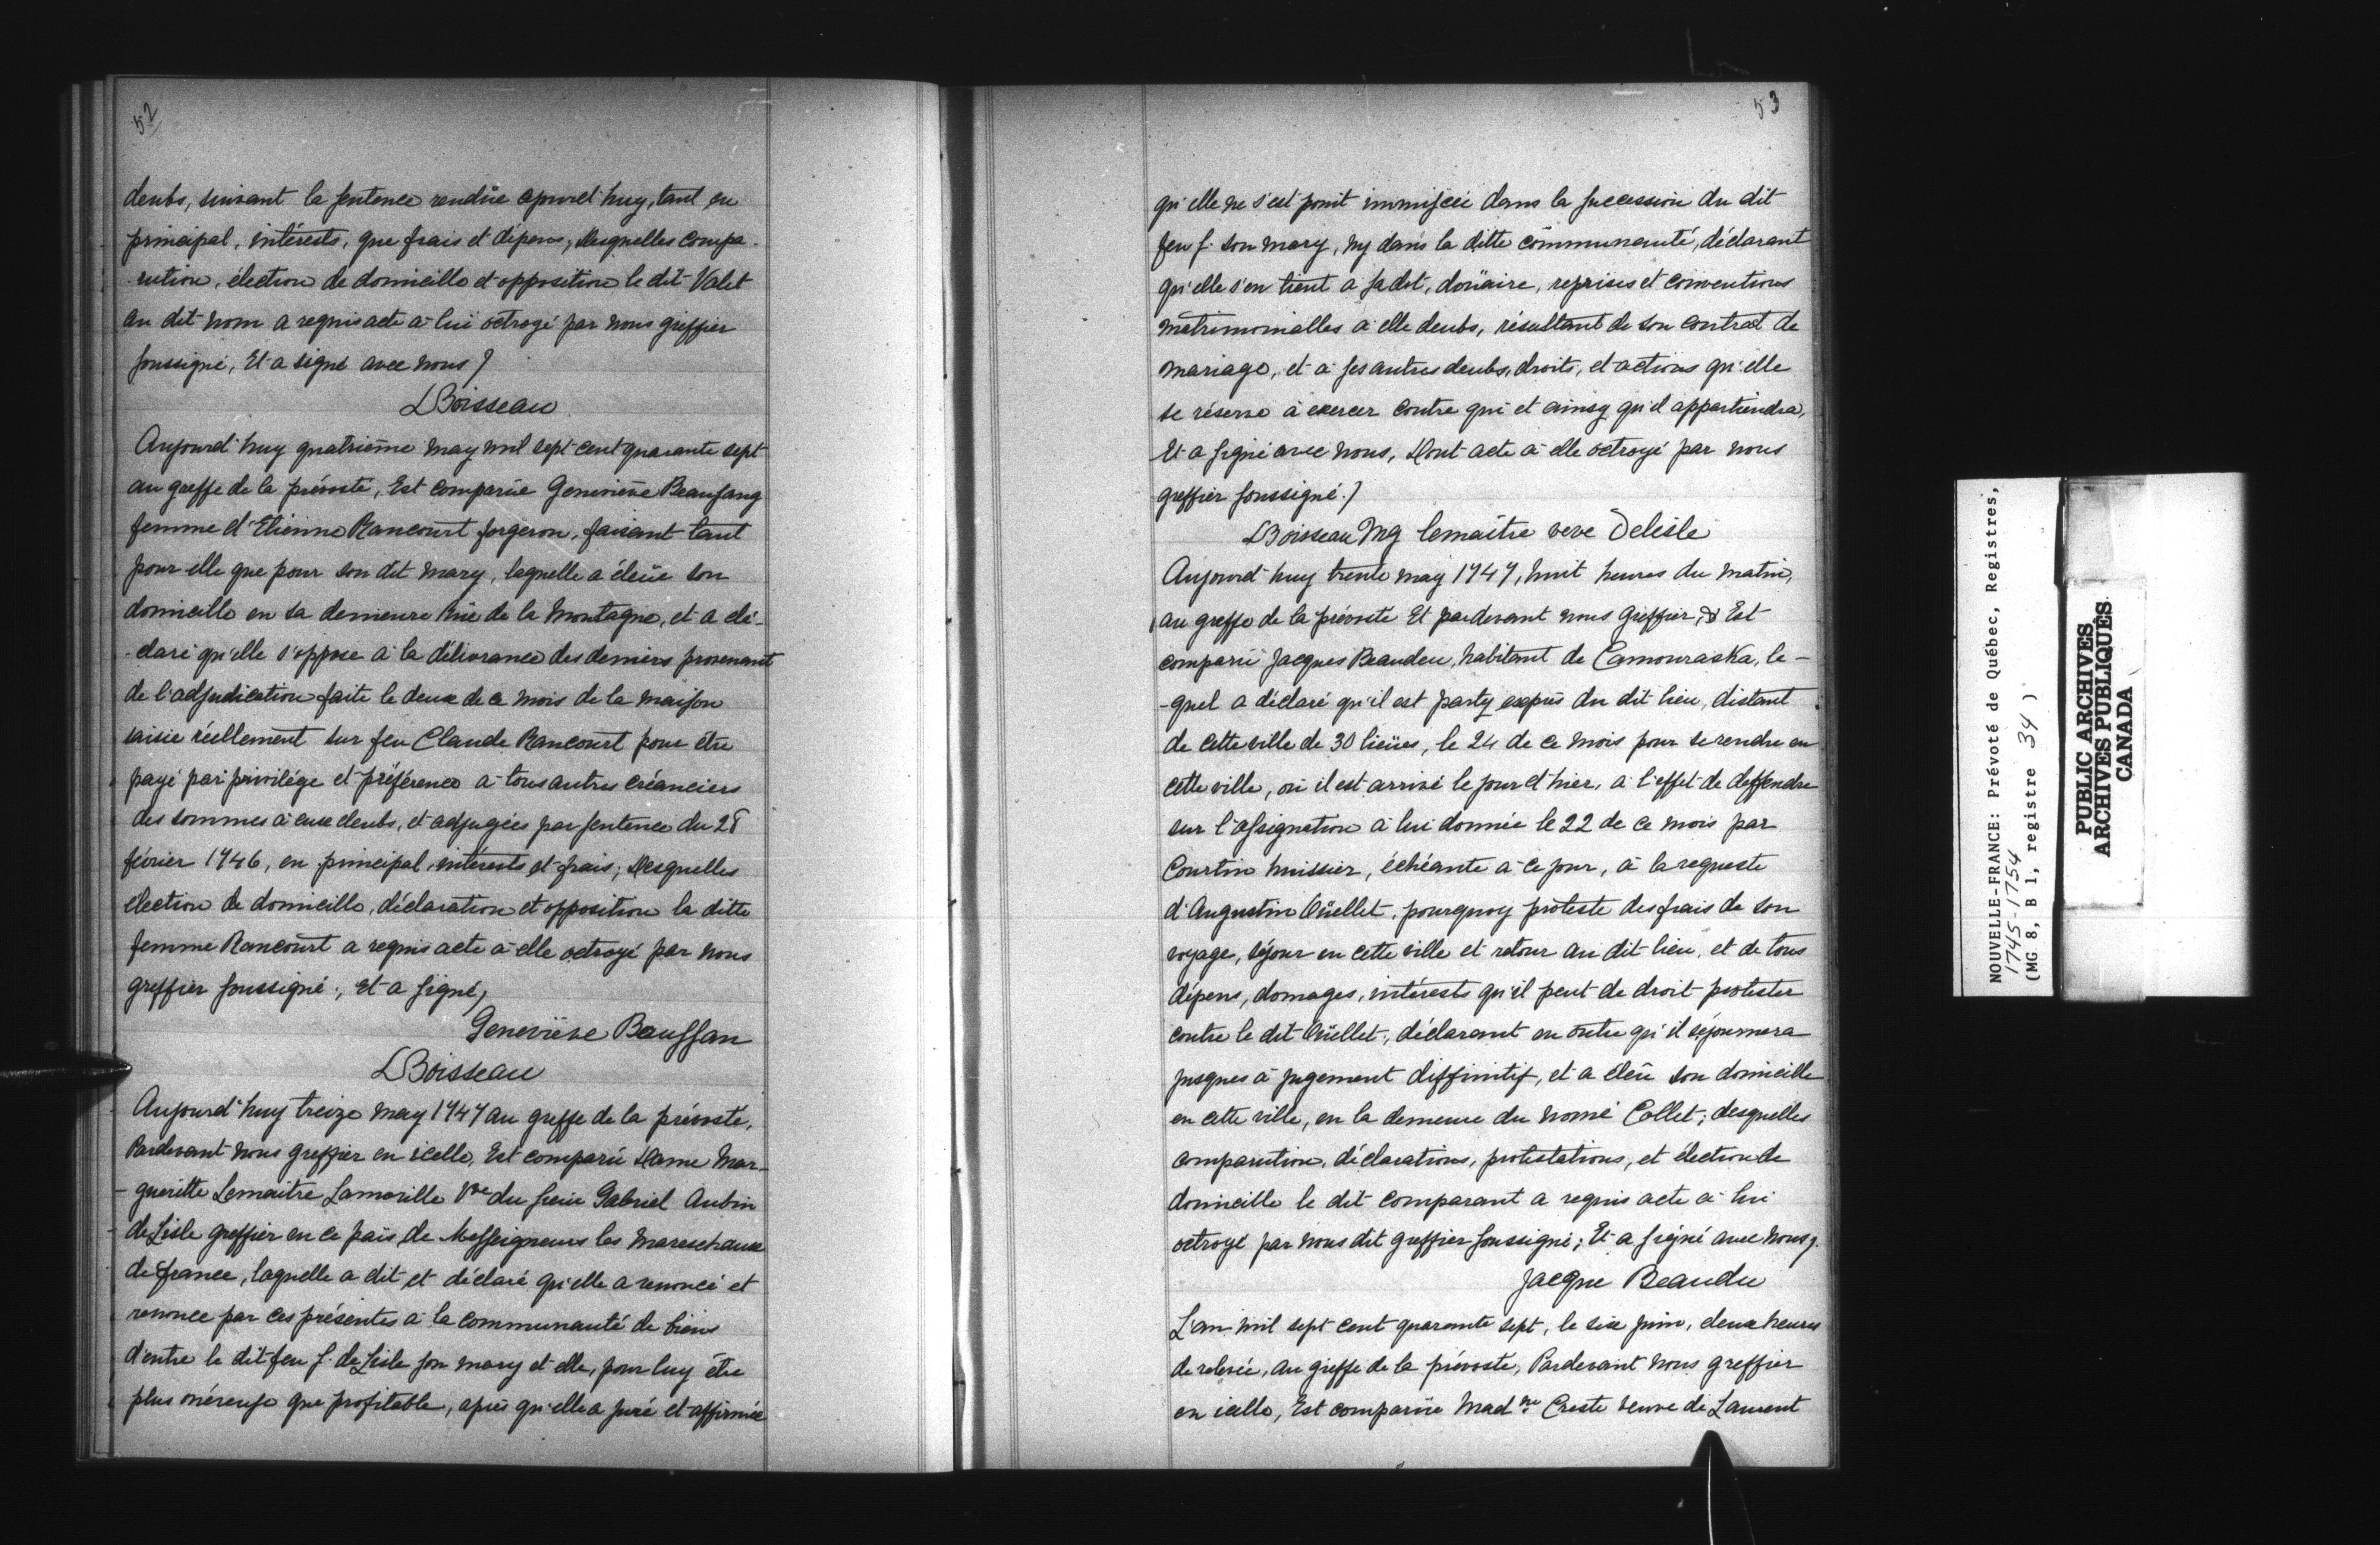 52
deubs, suivant la sentence rendüe apurd'huy, tant en
principal, intérests, que frais et dépens, Desquelles compa-
-rution, élection de domicille et opposition le dit Valet
au dit nom a requis acte à lui octroyé par nous greffier
soussigné, Et a signé avec nous /
LBoisseau
Aujourd'huy quatrième may mil sept cent quarante sept
au greffe de la prévosté, Est comparüe Geneviève Beausang
femme d'Etienne Rancourt forgeron, faisant tant
pour elle que pour son dit mary, laquelle a éleüe son
domicille en sa demeure Rüe de la Montagne, et a dé-
-claré qu'elle s'oppose à la délivrance des deniers provenant
de l'adjudication faite le deux de ce mois de la maison
saisie réellement sur feu Claude Rancourt pour être
payé par privilége et préférence à tous autres créanciers
des sommes à eux deubs, et adjugées par sentence du 28
février 1746, en principal, intérests et frais; Desquelles
élection de domicille, déclaration et opposition la ditte
femme Rancourt a requis acte à elle octroyé par nous
greffier soussigné;, Et a signé,
Geneviève Beussan
LBoisseau
Aujourd'huy treize may 1747 au greffe de la prévosté,
Pardevant nous greffier en icelle, Est comparüe Dame Mar-
-gueritte Lemaitre Lamorille Vve du sieur Gabriel Aubin
de Lisle greffier en ce païs de Messeigneurs les Mareschaux
de france, laquelle a dit et déclaré qu'elle a renoncé et
renonce par ces présentes à la communauté de biens
d'entre le dit feu s. de Lisle son mary et elle, pour luy être
plus onéreuse que profitable, après qu'elle a juré et affirmée
53
qu'elle ne s'est point immiscée dans la succession du dit
feu s. son mary, ny dans la ditte communauté, déclarant
qu'elle s'en tient à sa dot, doüaire, reprises et conventions
matrimonialles à elle deubs, résultant de son contrat de
mariage, et à ses autres deubs, droits, et actions qu'elle
se réserve à exercer contre qui et ainsy qu'il appartiendra,
Et a signé avec nous, Dont acte à elle octroyé par nous
greffier soussigné. /
LBoisseau Mg lemaitre veve Delisle
Aujourd'huy trente may 1747, huit heures du matin,
au greffe de la prévosté Et pardevant nous Greffier, & Est
comparü Jacques Beaudeu, habitant de Camouraska, le-
-quel a déclaré qu'il est party exprès du dit lieu, distant
de cette ville de 30 lieües, le 24 de ce mois pour se rendre en
cette ville, où il est arrivé le jour d'hier, à l'effet de deffendre
sur l'assignation à lui donnée le 22 de ce mois par
Courtin huissier, échéante à ce jour, à la requeste
d'Augustin Oüellet, pourquoy proteste des frais de son
voyage, séjour en cette ville et retour au dit lieu, et de tous
dépens, domages, intérests qu'il peut de droit protester
contre le dit Oüellet;, déclarant en outre qu'il séjournera
jusques à jugement diffinitif, et a éleü son domicille
en cette ville, en la demeure du nomé Collet; desquelles
comparution, déclarations, protestations, et élection de
domicille le dit comparant a requis acte à lui
octroyé par nous dit greffier soussigné; Et a signé avec nous /.
Jacque Beaudu
L'an mil sept cent quarante sept, le six juin, deux heures
de relevée, au greffe de la prévosté, Pardevant nous greffier
en icelle, Est comparüe Mad ne Creste veuve de Laurent
NOUVELLE-FRANCE: Prévoté de Québec, Registres,
1745-1754
(MG 8, B 1, registre 34 )
PUBLIC ARCHIVES
ARCHIVES PUBLIQUES
CANADA